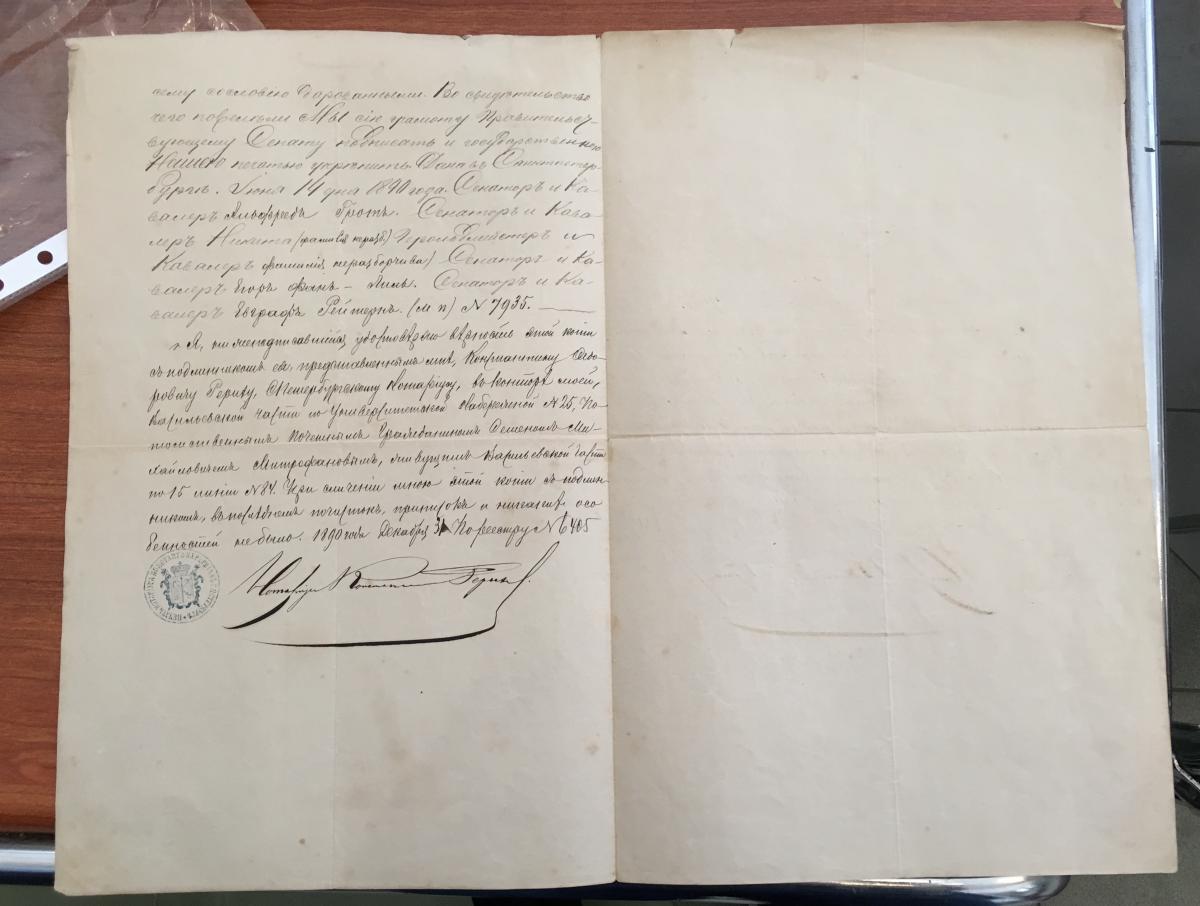 сему сословію дарованными. Во свидѣтельство
чего повелѣли Мы сію грамоту Правительст-
вующему Сенату подписать и государственною
Нашею печатью укрѣпить. Дана въ Санктпетер-
бургѣ. Іюня 14 дня 1890 года. Сенаторъ и Ка-
валеръ Альфредъ Гротъ. Сенаторъ и Кава
леръ Никита (фамилія нераз.) Герольдмейстеръ и
Кавалеръ фамилія неразборчива) Сенаторъ и Ка-
валеръ Егоръ фонъ-. Сенаторъ и Ка-
валеръ Евграфъ Рейтернъ. (м п) N 7935.
Я, нижеподписавшійся, удостовѣряю вѣрность этой копіи
съ подлинникомъ ея, представленнымъ мнѣ, Константину Ѳедо
ровичу Рериху, СПетербургскому Нотаріусу, въ конторѣ моей,
Васильевской части по Университетской Набережной N 25, По
томственнымъ Почетнымъ Гражданиномъ Семеномъ Ми
хайловичемъ Митрофановымъ, живущимъ Васильевской части
по 15 линіи N 84. При сличеніи мною этой копіи съ подлин-
никомъ, въ послѣднемъ почистокъ, приписокъ и никакихъ осо
бенностей не было. 1890 года Декабря 31 По реестру N 6405
Нотаріусъ Константинъ Рерихъ.